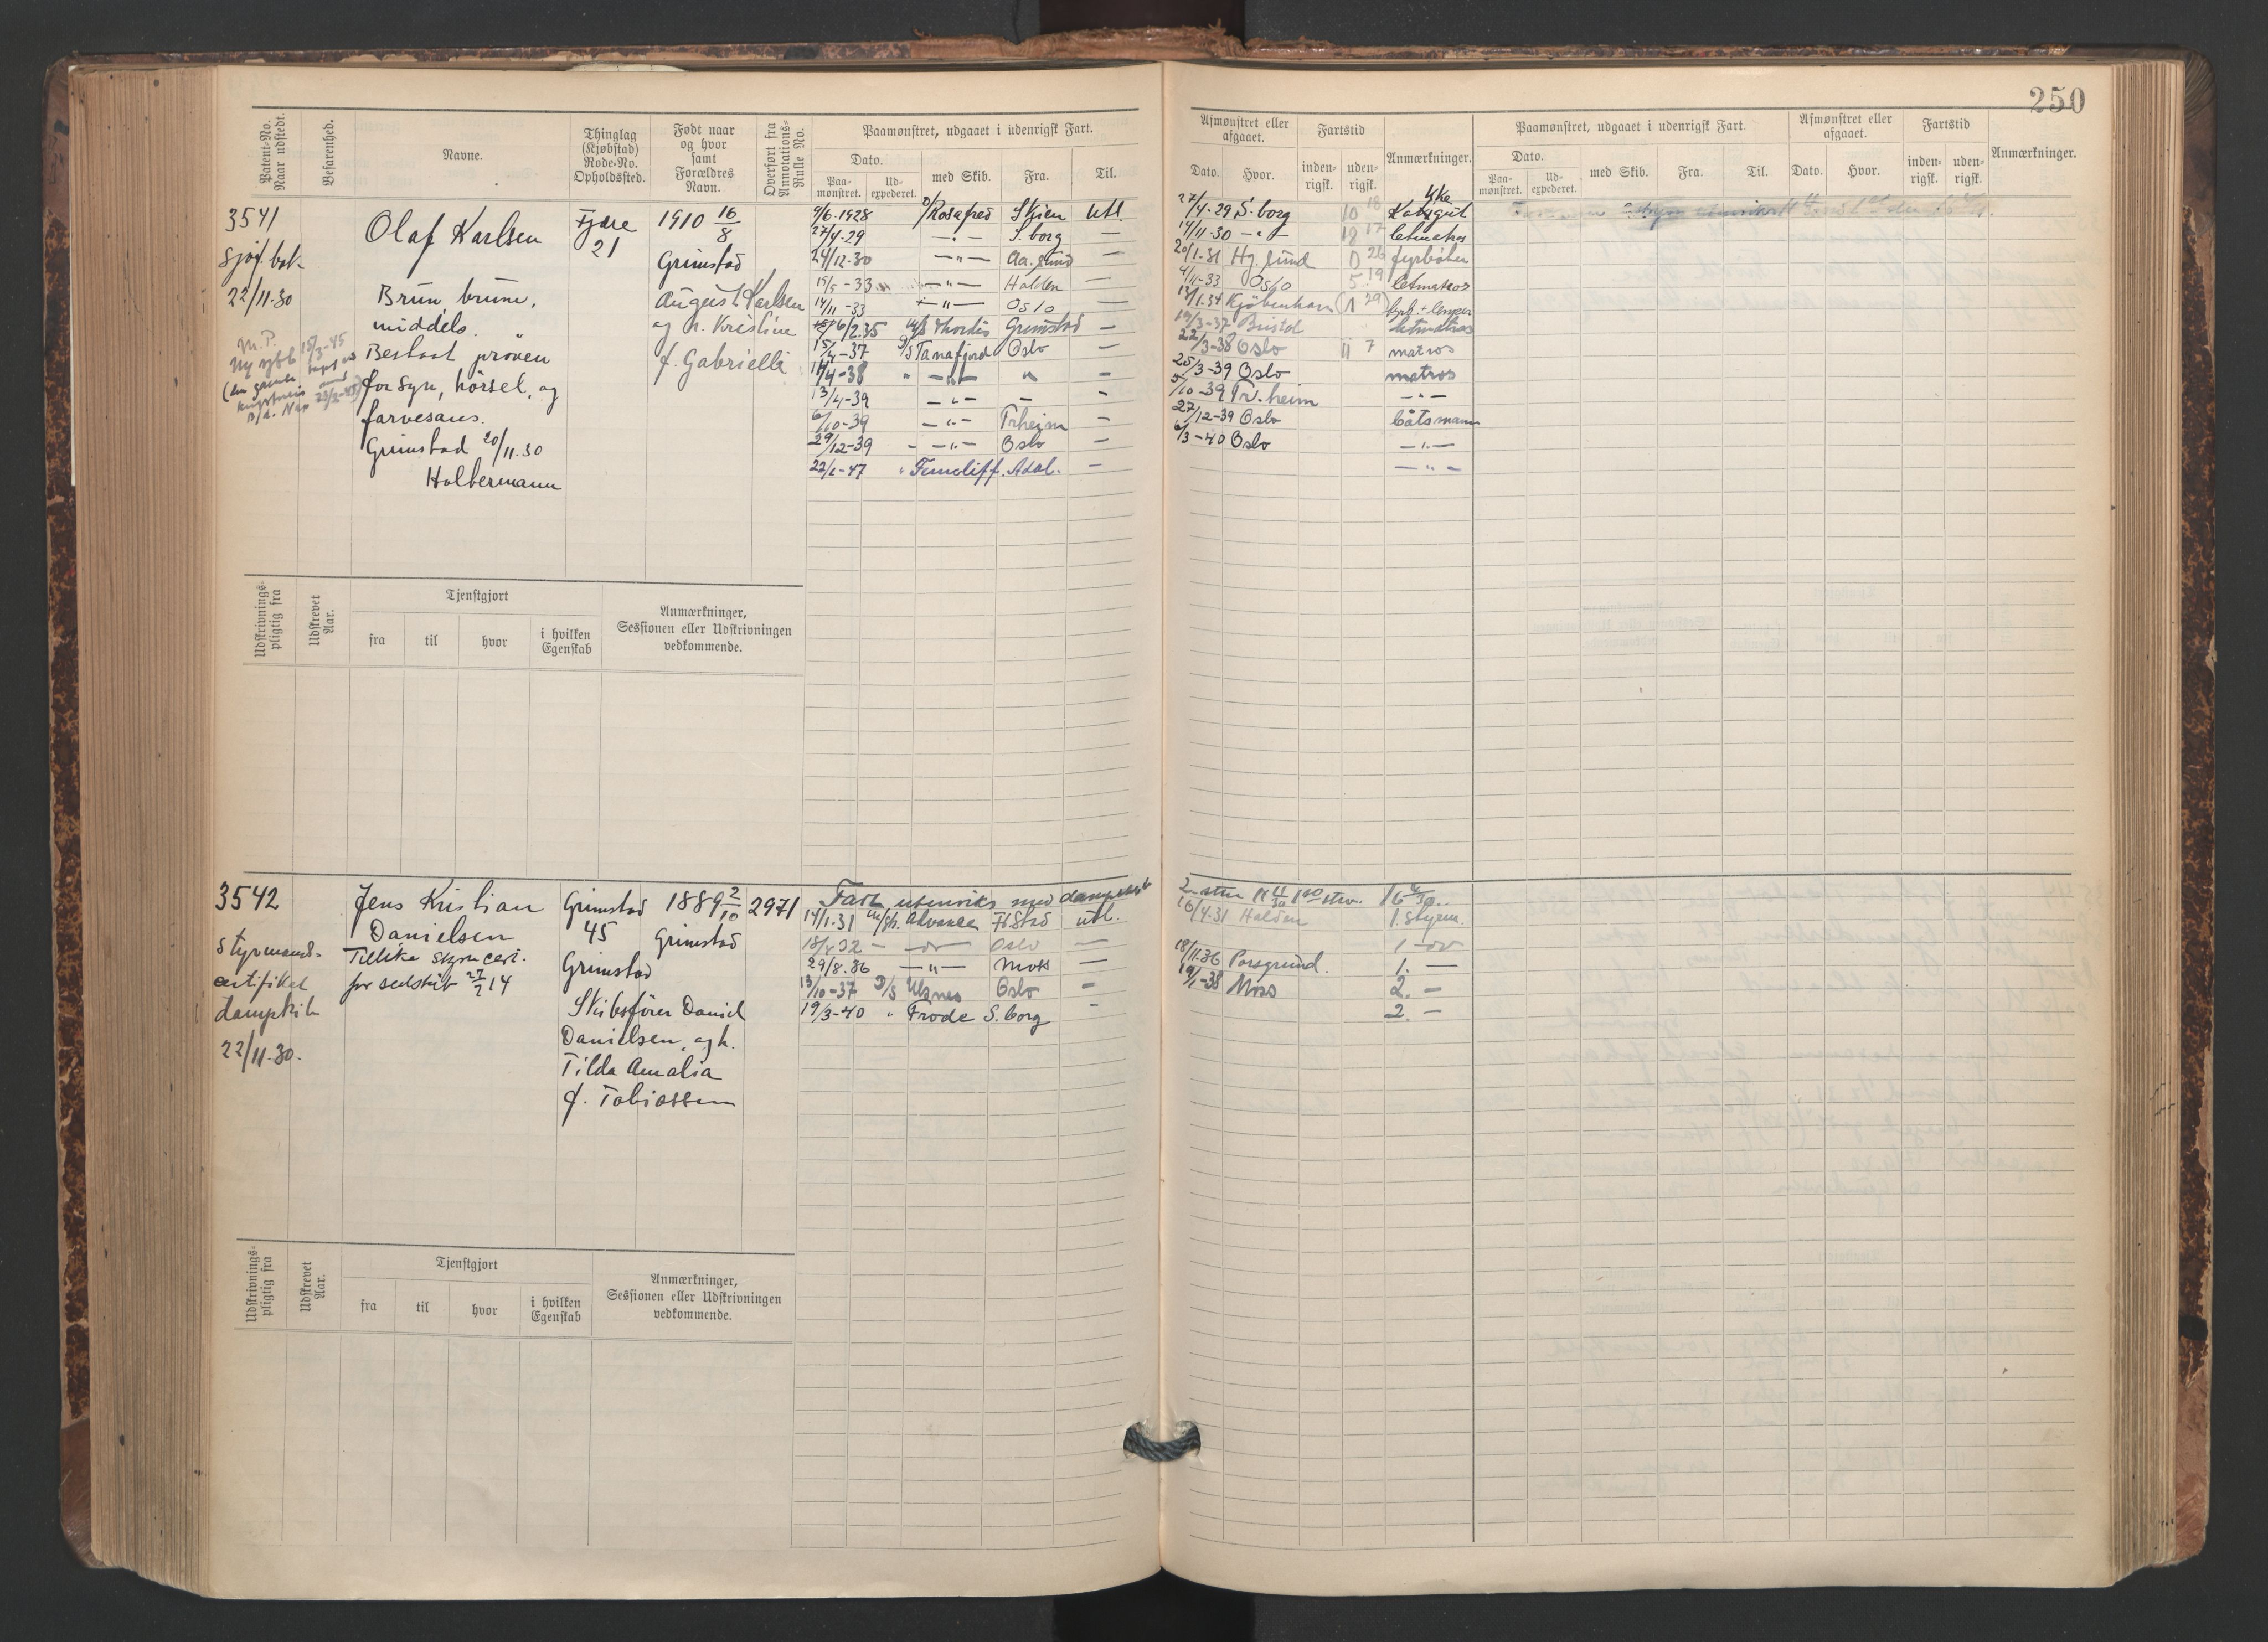 250
Patent-No. Naar udstedt.
Befarenhed.
Navne.
Thinglag (Kjøbstad) Rode-No. Opholdssted.
Født naar og hvor samt Forældres Navn.
Overført fra Annotations-Rulle No.
Paamønstret, udgaaet i udenrigsk Fart.
Dato.
Paa-mønstret.
Ud-expederet.
med Skib.
Fra.
Til.
Afmønstret eller afgaaet.
Dato.
Hvor.
Fartstid
inden-rigsk.
uden-rigsk.
Anmærkninger.
Paamønstret, udgaaet i udenrigsk Fart.
Dato.
Paa-mønstret.
Ud-expederet.
med Skib.
Fra.
Til.
Afmønstret eller afgaaet.
Dato.
Hvor.
Fartstid
inden-rigsk.
uden-rigsk.
Anmærkninger.
3541
Sjøf. bok
22/11-30
M.P.
Ny sjfb 15/3-45
Olaf Karlsen
Brun brune,
middels.
Bestaat prøven
for syn, hørsel, og
farvesans.
Grimstad 20/11.30
Holbermann
Fjære
21
1910 16/8
Grimstad
August Karlsen
og h. Kristine
f. Gabrielli
9/6.1928 D/ Rosafred Skien Utl.
27/4-29 —"— S.borg —
24/12-30 —"— Aa.sund —
15/5-33 —"— Halden —
14/11-33 —"— Oslo —
6/2.35 M/S Thordis Grimstad —
15/4-37 D/S Tanafjord Oslo —
11/4-38 " —"— " —
13/4-39 —"— — -
6/10-39 —"— Trheim —
29/12-39 - —"— Oslo —
22/1-47 " Ferncliff. Adal. —
27/4-29 S.borg 10 18 Kokkegut
14/11-30 —"— 18 17 letmatros
20/1-31 Hg.sund 0 26 fyrbøter
4/11-33 Oslo 5 19 letmatros
13/1.34 Kjøbenhavn (1 29) fyrb + lemper
19/3-37 Bristol letmatros
22/3-38 Oslo 11 7 matros
25/3-39 Oslo matros
5/10-39 Tr.heim —"—
27/12-39 Oslo båtsmann
6/3-40 Oslo —"—
—"—
Udskrivnings-pligtig fra
Udskrevet Aar.
Tjenstgjort
fra
til
hvor
i hvilken Egenskab
Anmærkninger, Sessionen eller Udskrivningen vedkommende.
3542
Styrmands-
certifikat
dampskib
22/11-30.
Jens Kristian
Danielsen
Tillike styrm cert.
for seilskib 27/2 14
Grimstad
45
1889 2/10
Grimstad
2971
Grimstad
Skibsfører Daniel
Danielsen, og h.
Tilda Amalia
f. Tobiassen
Fart utenriks med dampskib
14/1.31 M/Sk. Advance F.Stad utl.
18/4 32 — —"— Oslo —
29/8.36 —"— Moss —
13/10-37 D/S Ulsnes Oslo -
19/3-40 " Frode S.borg -
16/4.31 Halden 1. Styrm.
1 —"—
18/11.36 Porsgrund. 1. —
19/1-38 Moss 2. —
2. —
Udskrivnings-pligtig fra
Udskrevet Aar.
Tjenstgjort
fra
til
hvor
i hvilken Egenskab
Anmærkninger, Sessionen eller Udskrivningen vedkommende.